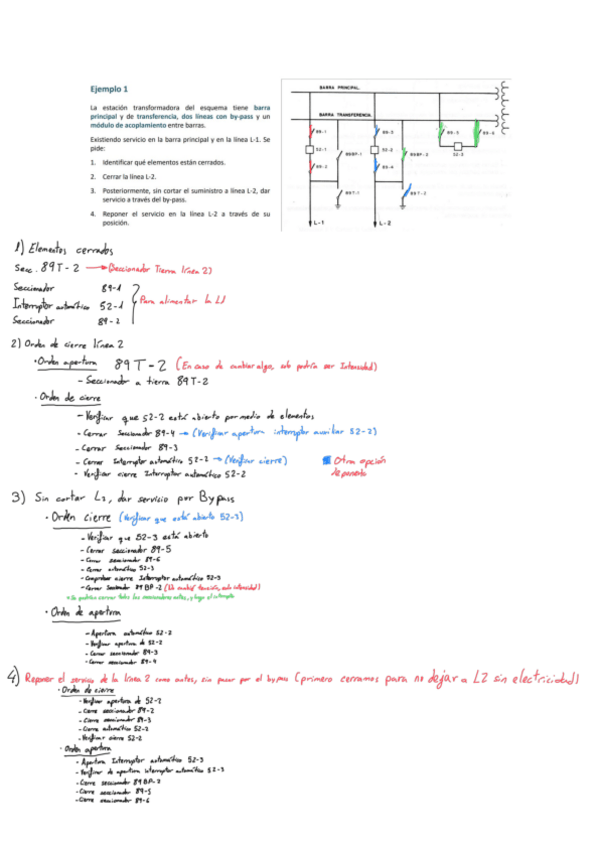 Ejemplo 1
La estación transformadora del esquema tiene barra
principal y de transferencia, dos líneas con by-pass y un
módulo de acoplamiento entre barras.
Existiendo servicio en la barra principal y en la línea L-1. Se
pide:
1. Identificar qué elementos están cerrados.
2. Cerrar la línea L-2.
3. Posteriormente, sin cortar el suministro a línea L-2, dar
servicio a través del by-pass.
4. Reponer el servicio en la línea L-2 a través de su
posición.
BARRA PRINCIPAL.
BARRA TRANSFERENCIA.
89-1
89-3
89-5
89-6
52-1
52-2
52-3
89BP-1
89BP-2
89-2
89-4
89T-1
89T-2
L-1
L-2
1) Elementos cerrados
Secc. 89T-2 → (Seccionador Tierra línea 2)
Seccionador 89-1
Interruptor automático 52-1 Para alimentar la L1
Seccionador 89-2
2) Orden de cierre línea 2
· Orden apertura 89T-2 (En caso de cambiar algo, solo podría ser Intensidad)
- Seccionador a tierra 89T-2
· Orden de cierre
- Verificar que 52-2 está abierto por medio de elementos
- Cerrar Seccionador 89-4 → (Verificar apertura interruptor auxiliar 52-2)
- Cerrar Seccionador 89-3
- Cerrar Interruptor automático 52-2 → (Verificar cierre)
Otra opción
de ponerlo
- Verificar cierre Interruptor automático 52-2
3) Sin cortar L2, dar servicio por Bypass
· Orden cierre (Verificar que está abierto 52-3)
- Verificar que 52-3 está abierto
- Cerrar seccionador 89-5
- Cerrar seccionador 89-6
- Cerrar automático 52-3
- Comprobar cierre Interruptor automático 52-3
- Cerrar Seccionador 89BP-2 (No cambia tensión, solo intensidad)
Se podrían cerrar todos los seccionadores antes, y luego el interruptor
· Orden de apertura
- Apertura automático 52-2
- Verificar apertura de 52-2
- Cerrar seccionador 89-3
- Cerrar seccionador 89-4
4) Reponer el servicio de la línea 2 como antes, sin pasar por el bypass (primero cerramos para no dejar a L2 sin electricidad)
- Orden de cierre
- Verificar apertura de 52-2
- Cierre seccionador 89-2
- Cierre seccionador 89-3
- Cierre automático 52-2
- Verificar cierre 52-2
- Orden apertura
- Apertura Interruptor automático 52-3
- Verificar de apertura interruptor automático 52-3
- Cierre seccionador 89BP-2
- Cierre seccionador 89-5
- Cierre seccionador 89-6